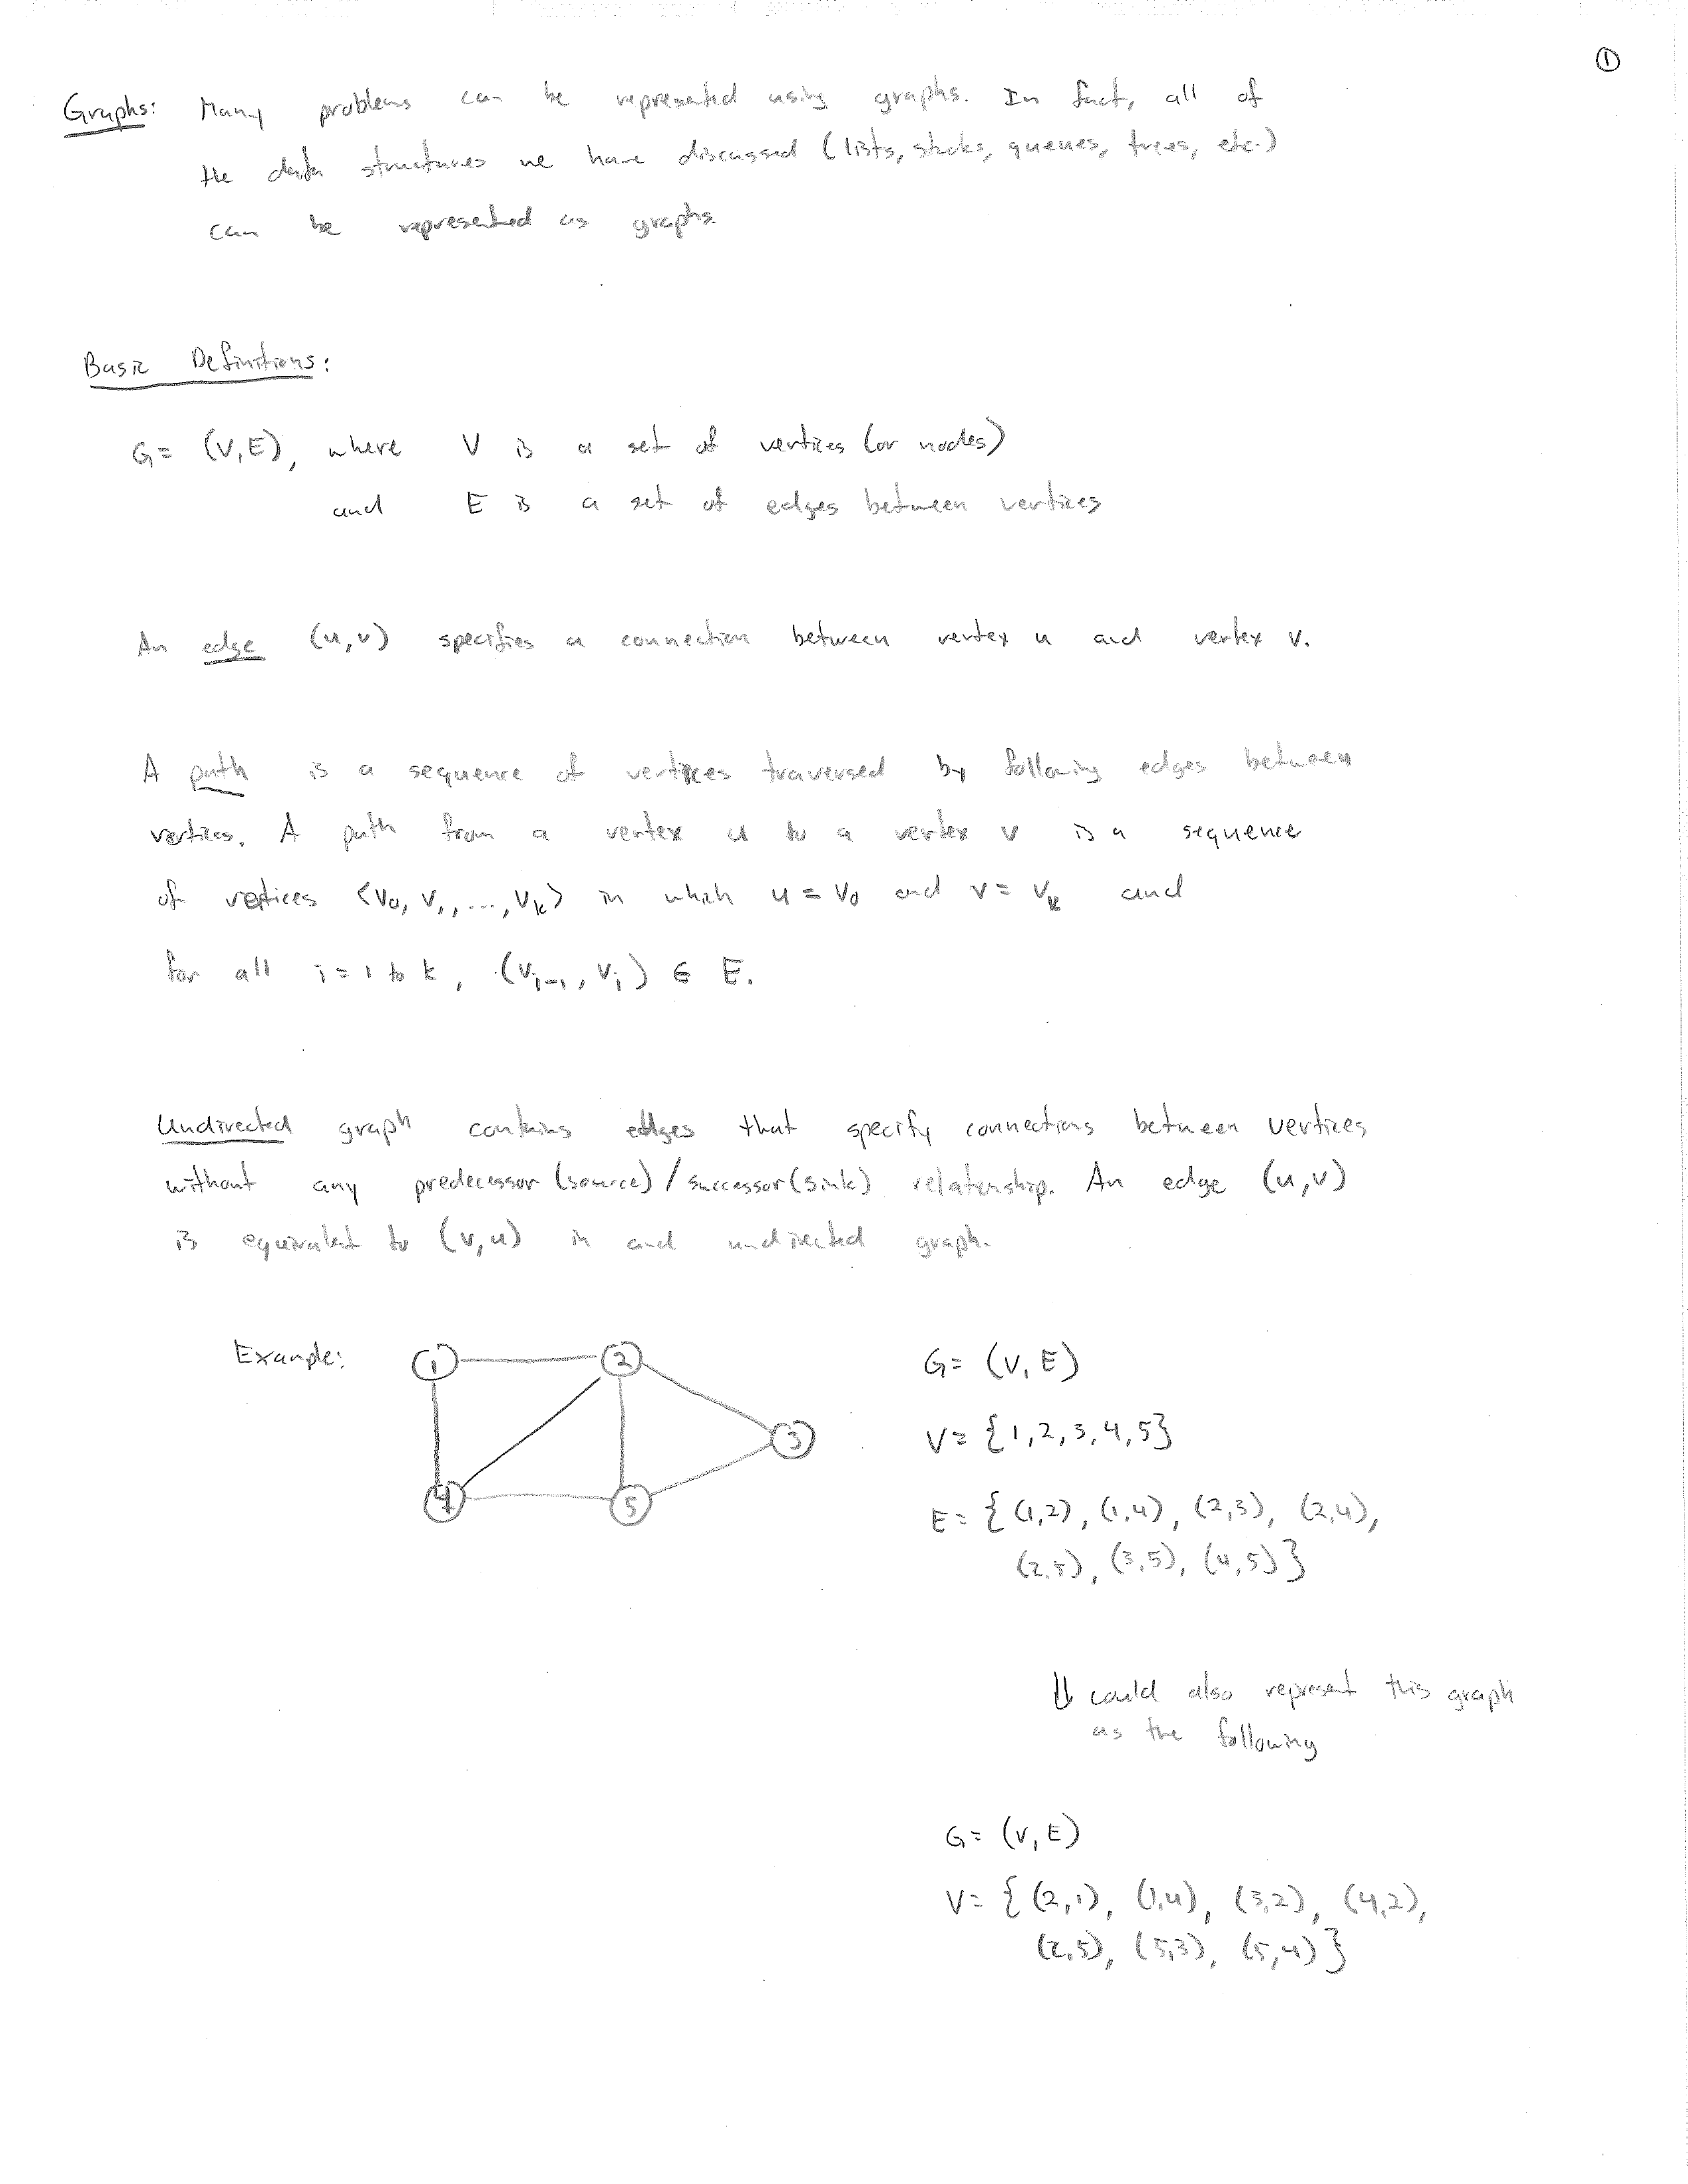 ①
Graphs: Many problems can be represented using graphs. In fact, all of
the data structures we have discussed (lists, stacks, queues, trees, etc.)
can be represented as graphs.
Basic Definitions:
G = (V, E), where V is a set of vertices (or nodes)
and E is a set of edges between vertices
An edge (u, v) specifies a connection between vertex u and vertex v.
A path is a sequence of vertices traversed by following edges between
vertices. A path from a vertex u to a vertex v is a sequence
of vertices <v₀, v₁, ..., vₖ> in which u = v₀ and v = vₖ and
for all i = 1 to k, (vᵢ₋₁, vᵢ) ∈ E.
Undirected graph contains edges that specify connections between vertices
without any predecessor (source) / successor (sink) relationship. An edge (u, v)
is equivalent to (v, u) in and undirected graph.
Example:
1 2
3
4 5
G = (V, E)
V = {1, 2, 3, 4, 5}
E = {(1,2), (1,4), (2,3), (2,4),
(2,5), (3,5), (4,5)}
⇓ could also represent this graph
as the following
G = (V, E)
V = {(2,1), (1,4), (3,2), (4,2),
(2,5), (5,3), (5,4)}